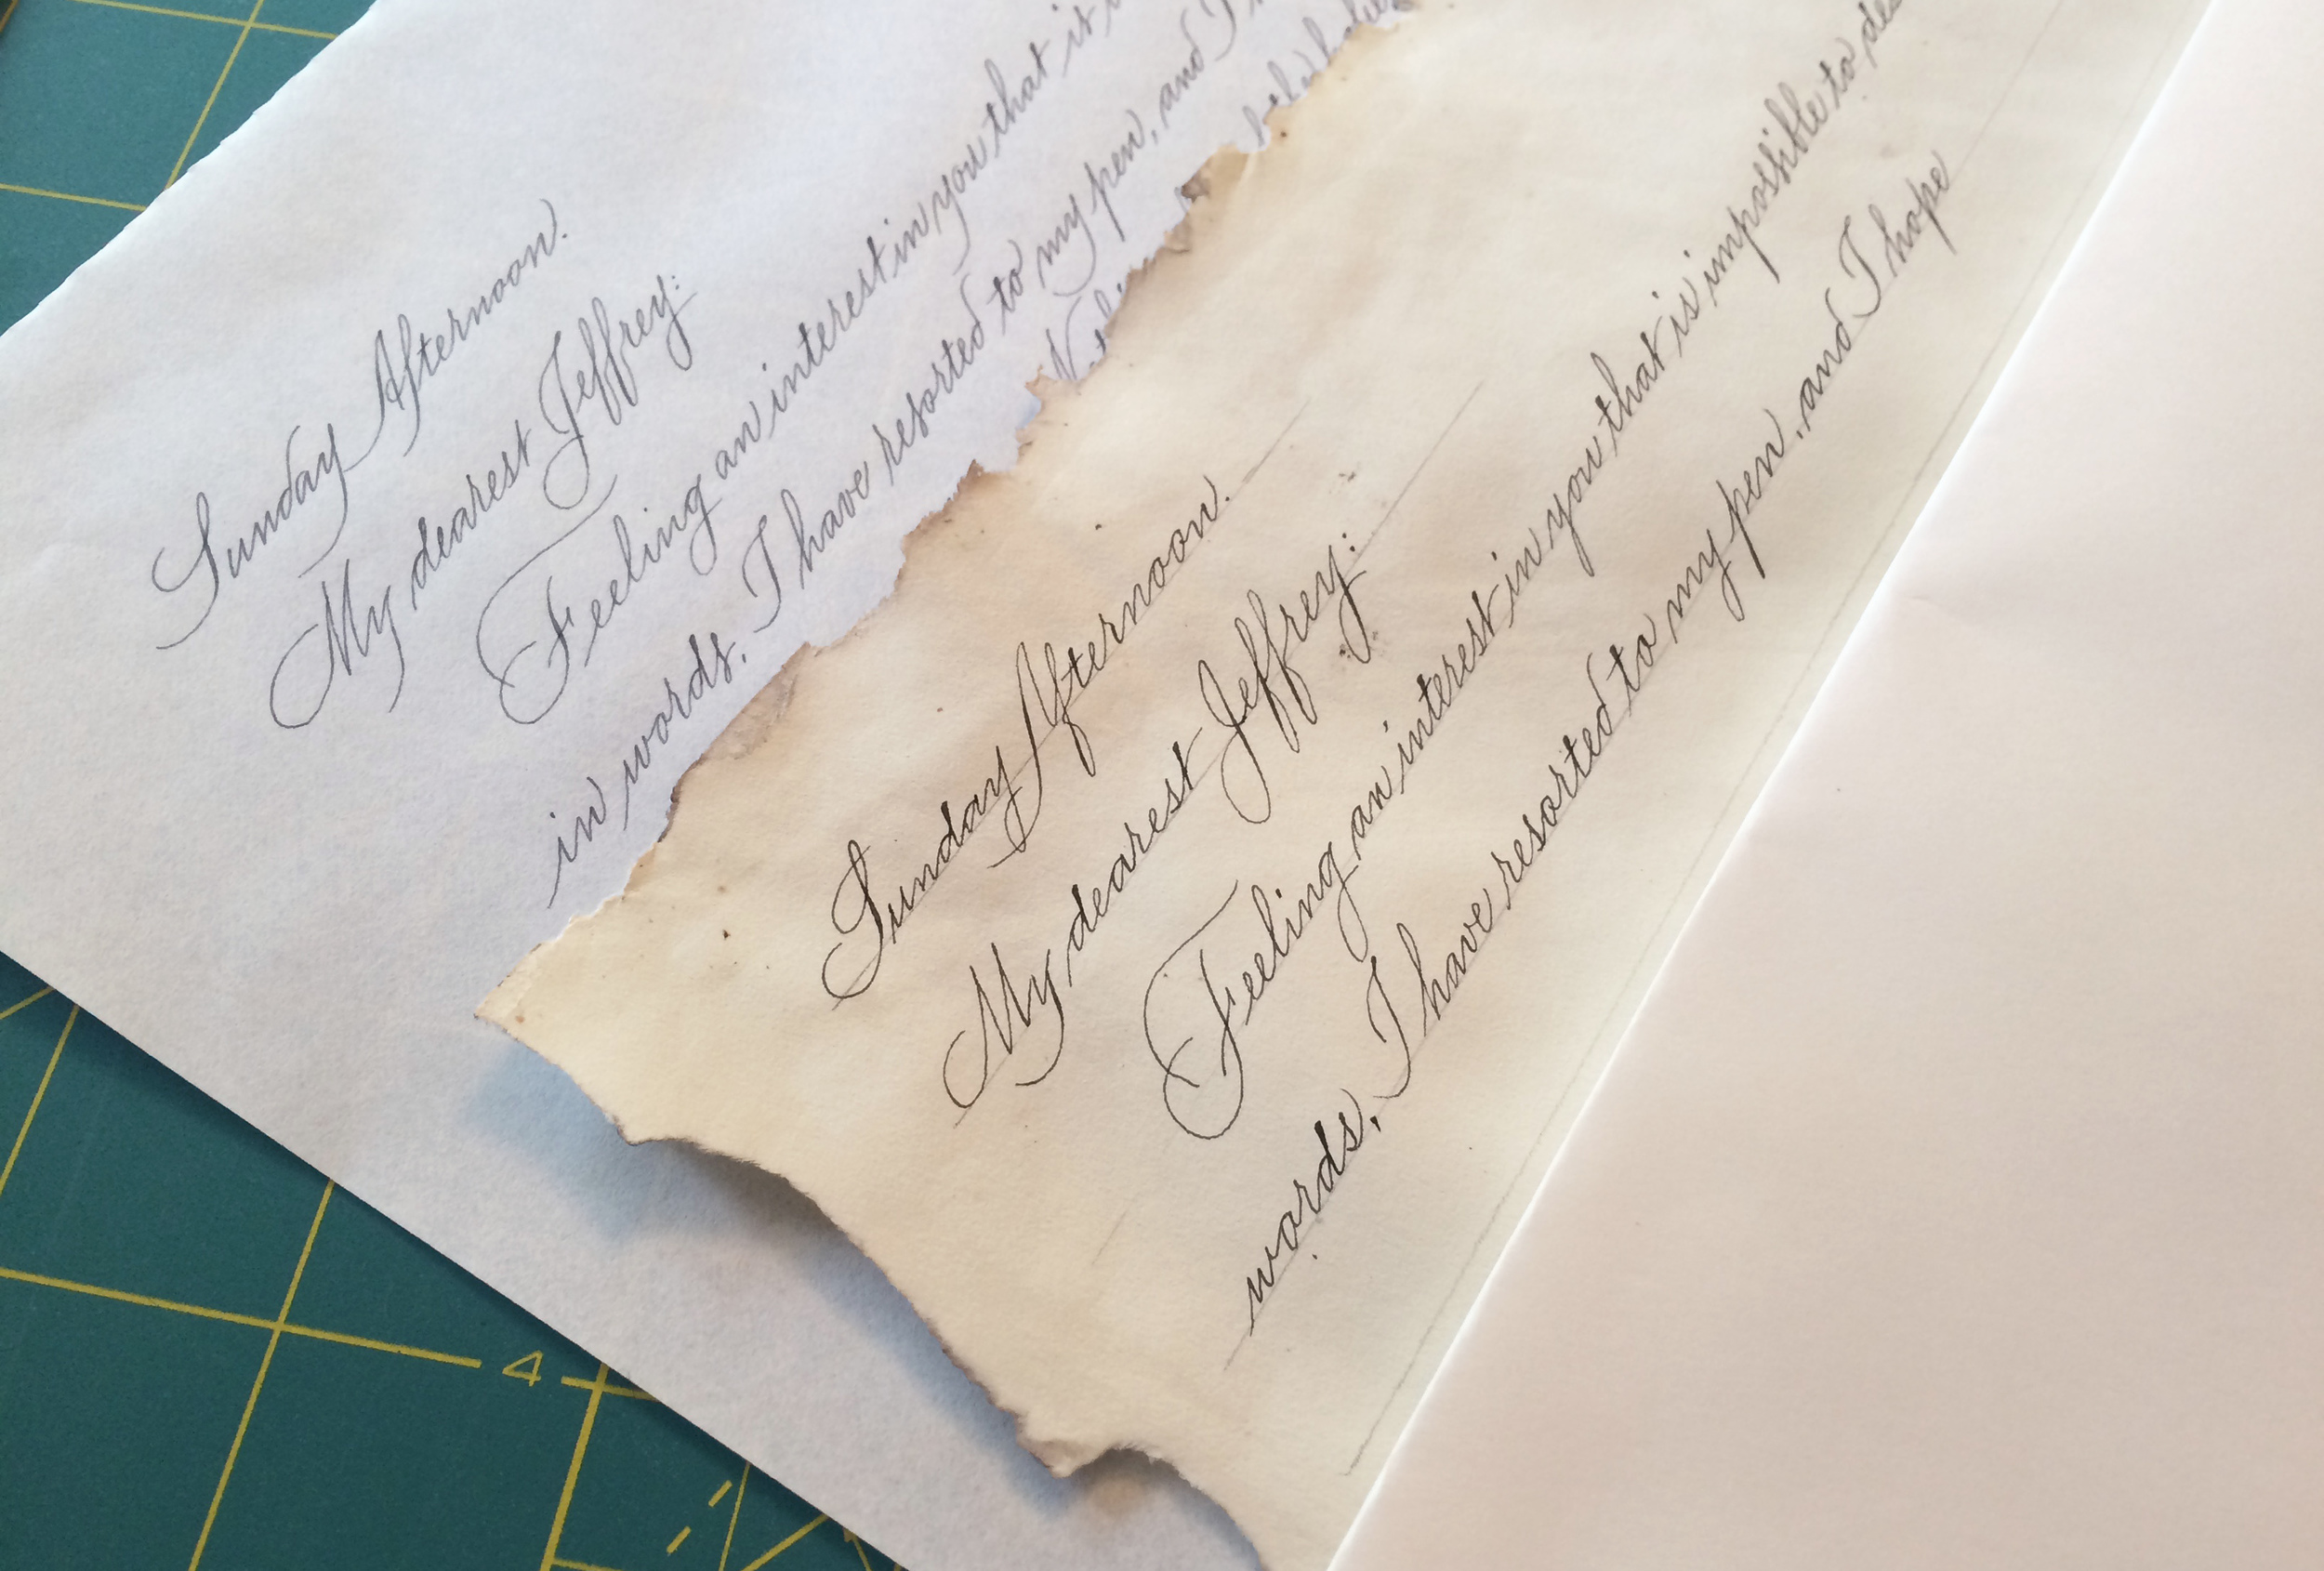 Sunday Afternoon.
My dearest Jeffrey:
Feeling an interest in you that it
in words, I have resorted to my pen, and I
Sunday Afternoon.
My dearest Jeffrey:
Feeling an interest in you that is impossible to des
words, I have resorted to my pen, and I hope
4